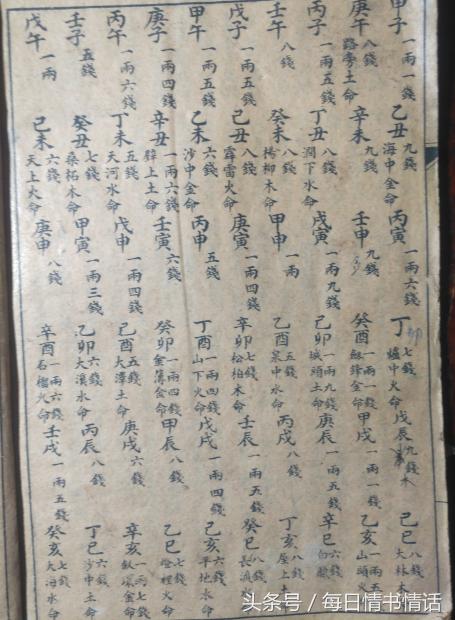 甲子 一兩一錢 乙丑 九錢 海中金命 丙寅 一兩六錢 丁卯 七錢 爐中火命 戊辰 九錢 木 己巳 八錢 大林木
庚午 八錢 路旁土命 辛未 九錢 壬申 九錢 癸酉 一兩一錢 劍鋒金命 甲戌 一兩一錢 乙亥 一兩五 山頭火
丙子 一兩五錢 丁丑 八錢 澗下水命 戊寅 一兩九錢 己卯 一兩九錢 城頭土命 庚辰 一兩五錢 辛巳 六錢 白臘
壬午 八錢 癸未 八錢 楊柳木命 甲申 一兩 乙酉 五錢 泉中水命 丙戌 八錢 丁亥 八錢 屋上
戊子 一兩五錢 己丑 八錢 霹雷火命 庚寅 一兩四錢 辛卯 七錢 松柏木命 壬辰 一兩五錢 癸巳 八錢 長流
甲午 一兩五錢 乙未 六錢 沙中金命 丙申 五錢 丁酉 一兩四錢 山下火命 戊戌 一兩四錢 己亥 六錢 平地水命
庚子 一兩四錢 辛丑 一兩六錢 壁上土命 壬寅 六錢 癸卯 一兩四錢 金簿金命 甲辰 八錢 乙巳 七錢 燈裡火命
丙午 一兩六錢 丁未 五錢 天河水命 戊申 一兩四錢 己酉 五錢 大澤土命 庚戌 六錢 辛亥 一兩七錢 釵環金命
壬子 五錢 癸丑 七錢 桑柘木命 甲寅 一兩三錢 乙卯 六錢 大溪水命 丙辰 八錢 丁巳 六錢 沙中土命
戊午 一兩 己未 六錢 天上火命 庚申 八錢 辛酉 一兩六錢 石榴火命 壬戌 一兩五錢 癸亥 七錢 大海水命
头条号 / 每日情书情话